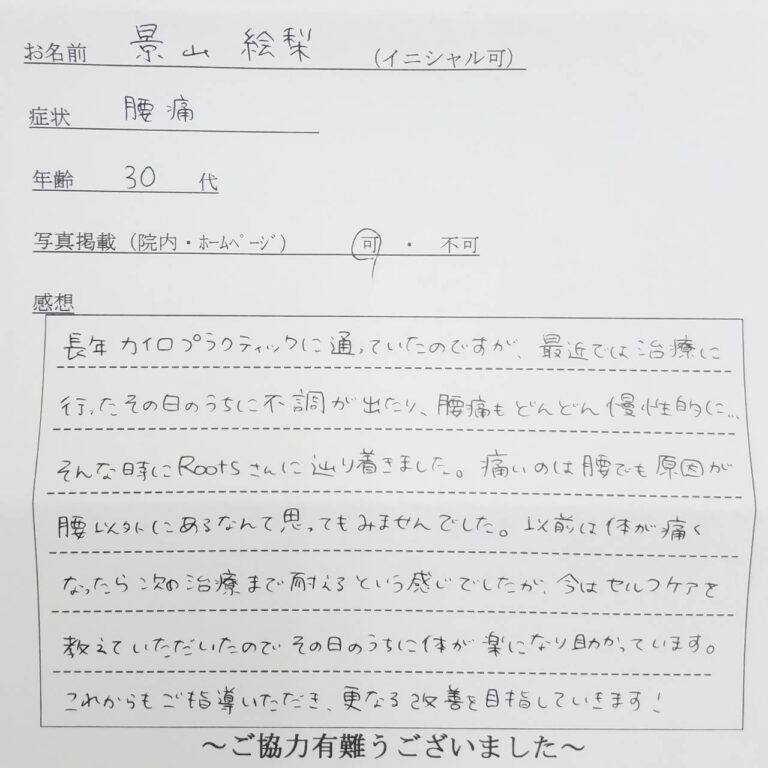 お名前 景山 絵梨 (イニシャル可)
症状 腰痛
年齢 30 代
写真掲載（院内・ホームページ） 可 ・ 不可
感想
長年カイロプラクティックに通っていたのですが、最近では治療に
行ったその日のうちに不調が出たり、腰痛もどんどん慢性的に…
そんな時にRootsさんに辿り着きました。痛いのは腰でも原因が
腰以外にあるなんて思ってもみませんでした。以前は体が痛く
なったら次の治療まで耐えるという感じでしたが、今はセルフケアを
教えていただいたのでその日のうちに体が楽になり助かっています。
これからもご指導いただき、更なる改善を目指していきます!
～ご協力有難うございました～